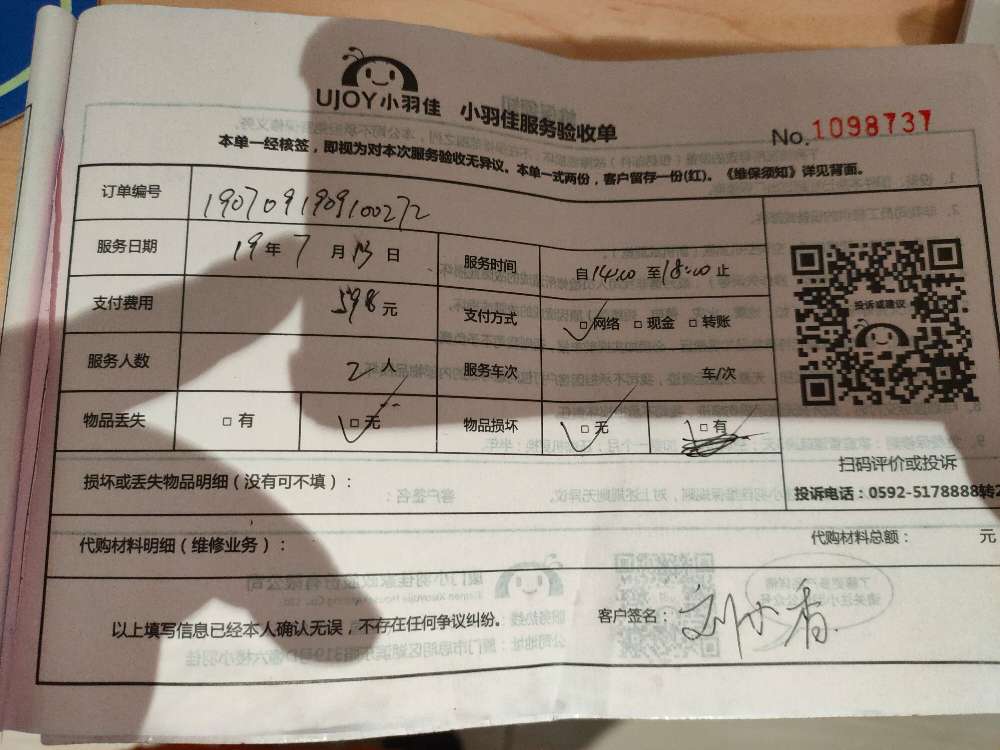 UJOY小羽佳 小羽佳服务验收单
No.1098737
本单一经核签，即视为对本次服务验收无异议。本单一式两份，客户留存一份(红)。《维保须知》详见背面。
订单编号 1907091909100272
服务日期 19年7月13日 服务时间 自14:00至18:00止
支付费用 598元 支付方式 □网络 □现金 □转账
服务人数 2人 服务车次 车/次
物品丢失 □有 □无 物品损坏 □无 □有
投诉或建议
扫码评价或投诉
投诉电话：0592-5178888转2
损坏或丢失物品明细（没有可不填）：
代购材料明细（维修业务）： 代购材料总额： 元
以上填写信息已经本人确认无误，不存在任何争议纠纷。 客户签名：